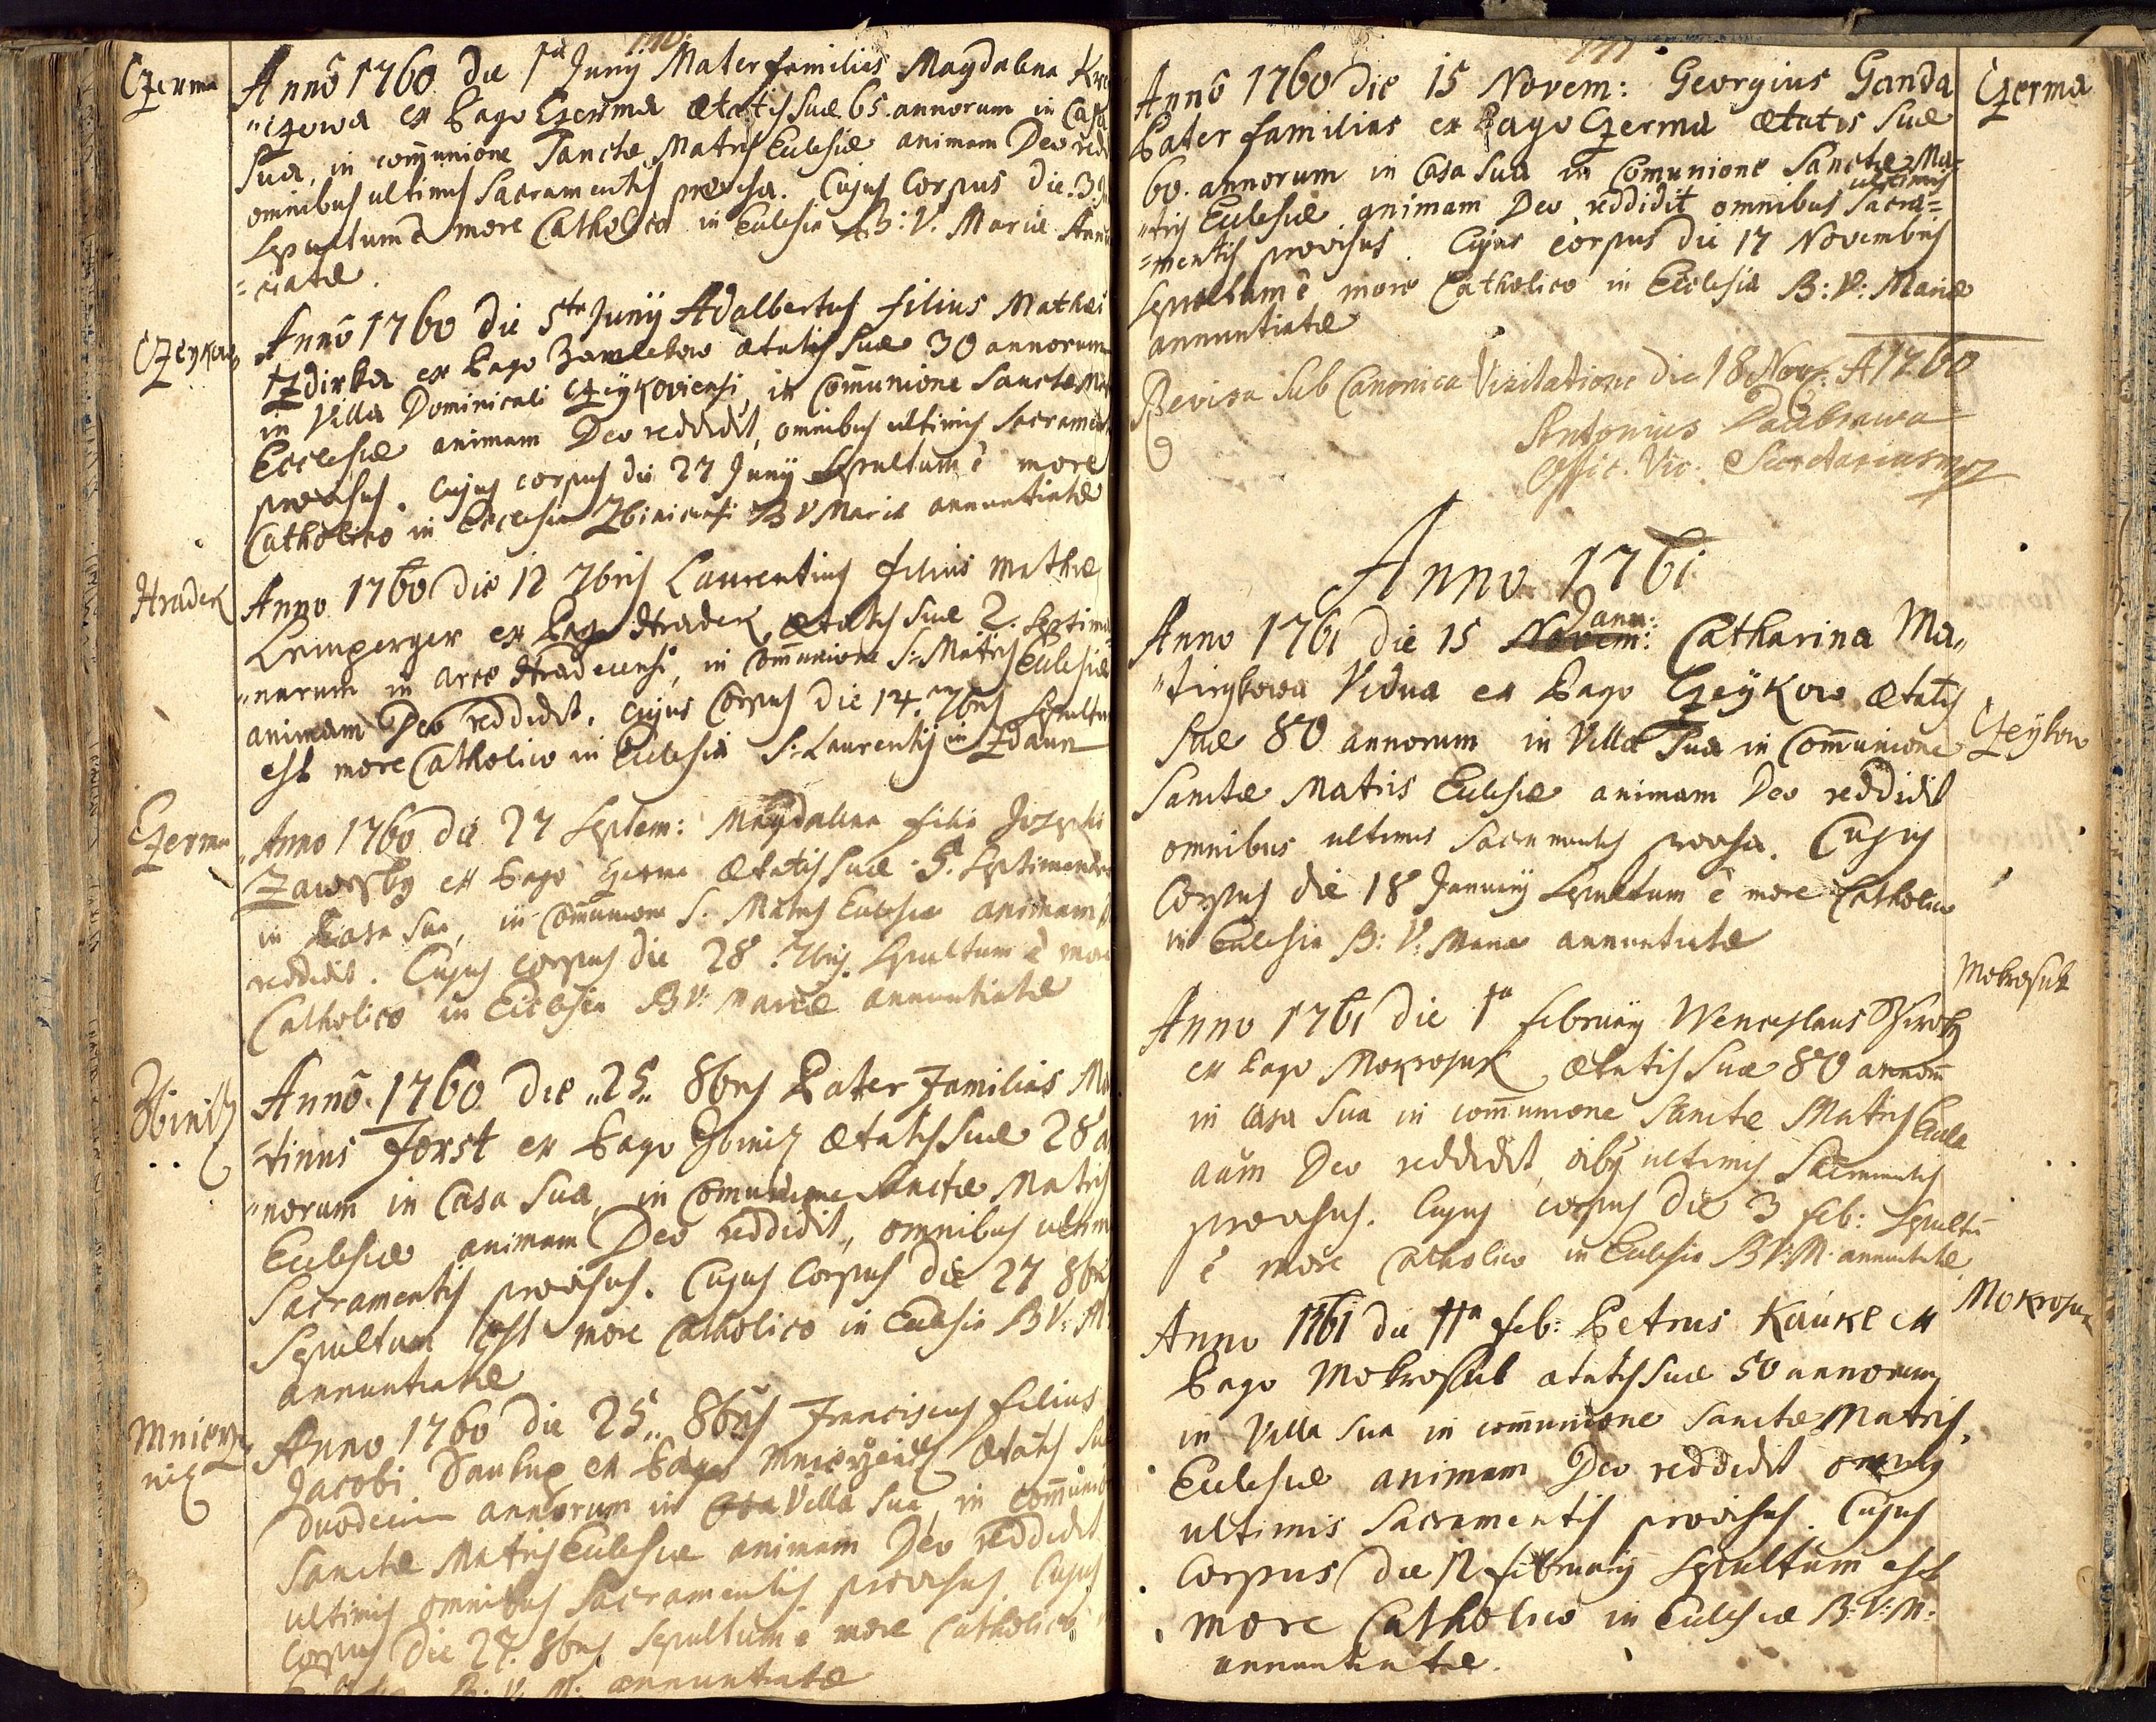 140.
Czerma
Anno 1760 die 1ma Junij Mater familias Magdalena
"czowa ex Pago Czerma ætatis suæ 65. annorum in Casa
Sua, in comunione Sanctæ Matris Eclesiæ animam Deo redd
omnibus ultimis Sacramentis provisa. Cujus Corpus die 3.
Sepultum ẽ more Catholico in Eclesia B: V. Mariæ Annu
=ciatæ.
Czeykow
Anno 1760 die 5ta Junij Adalbertus filius Mathæi
ex Pago ætatis Suæ 30 annorum
in Villa Dominicali Czeykoviensi, in Comunione Sanctæ
Ecclesiæ animam Deo reddidit, omnibus ultimis Sacrament
provisus. Cujus corpus die 27 Junij Sepultum ẽ more
Catholico in Ecclesia Zbinicensi B V Mariæ annuntiatæ
Hradek
Anno 1760 die 12 7bris Laurentius filius Mathiæ
Lemperger ex Pago Hradek, ætatis suæ 2. Septima
"narum in arce Hradecensi, in Comunione S: Matris Eclesiæ
animam Deo reddidit. Cujus Corpus die 14. 7bris Sepultum
est more Catholico in Eclesia S: Laurentij in Zdaun
Czerma
Anno 1760 die 27 Septem: Magdalena filia Josephi
ex Pago Czerma ætatis Suæ 5. Septimanar
in Casa Sua, in Comunione S. Matris Eclesiæ animam
reddidit. Cujus corpus die 28. 7bris. Sepultum ẽ more
Catholico in Ecclesia B V: Mariæ annuntiatæ
Zbinitz
Anno. 1760 die "25" 8bris Pater Familias Ma
=tinus Forst ex Pago Zbiniz ætatis Suæ 28 a
"norum in Casa Sua, in Comunione Sanctæ Matris
Eclesiæ animam Deo reddidit, omnibus ultim
Sacramentis provisus. Cujus Corpus die 27 8bris
Sepultum est more Catholico in Eclesia B V: M:
annuntiatæ
Anno 1760 die 25" 8bris Franciscus filius
Jacobi ex Pago ætatis Suæ
Duodecim annorum in Casa Villa Sua, in comunio
Sanctæ Matris Eclesiæ animam Deo reddidit
ultimis omnibus Sacramentis provisus Cujus
Corpus Die 27. 8bris Sepultum ẽ more Catholico
B: V: M: annuntiatæ
141
Anno 1760 die 15 Novem: Georgius Ganda
Czerma
Pater familias ex Pago Czerma ætatis Suæ
60. annorum in Casa Sua in Comunione Sanctæ Ma=
"tris Eclesiæ animam Deo reddidit omnibus ultimis Sacra=
=mentis provisus. Cujus corpus die 17 Novembris
Sepultum ẽ more Catholico in Ecclesia B: V: Mariæ
annuntiatæ
Revisa sub Canonica Visitatione die 18 Nov: A 1760
Antonius Daubrawa
Offic. Vic. Secretarius mpz
Anno 1761
Anno 1761 die 15 Novem: Janu: Catharina Ma"
Vidua ex Pago Czeykow ætatis
Czeykow
Suæ 80 annorum in Villa Sua in Comunione
Sanctæ Matris Eclesiæ animam Deo reddidit
omnibus ultimis Sacramentis provisa. Cujus
Corpus die 18 Januarij Sepultum ẽ more Catholico
in Eclesia B: V: Mariæ annuntiatæ
Mokrosuk
Anno 1761 die 1a february Wenceslaus
ex Pago Mokrosuk ætatis Suæ 80 annorũ
in Casa Sua in comunione Sanctæ Matris Eccle
aãm Deo reddidit, oibus ultimis Sacramentis
provisus. Cujus corpus die 3 feb: Sepultũ
ẽ more Catholico in Eclesia B V: M. annuntiatæ
Mokrosuk
Anno 1761 die 11a feb: Petrus Kaukl ex
Pago Mokrosuk ætatis Suæ 50 annorum
in Villa Sua in comunione Sanctæ Matris
Eclesiæ animam Deo reddidit omnibus
ultimis Sacramentis provisus. Cujus
Corpus die 12 february Sepultum est
more Catholico in Eclesia B: V: M:
annuntiatæ.